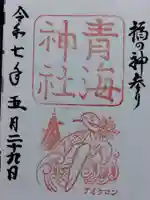 の神参り
青海
神社
令和七年五月二十九日
アイケロン